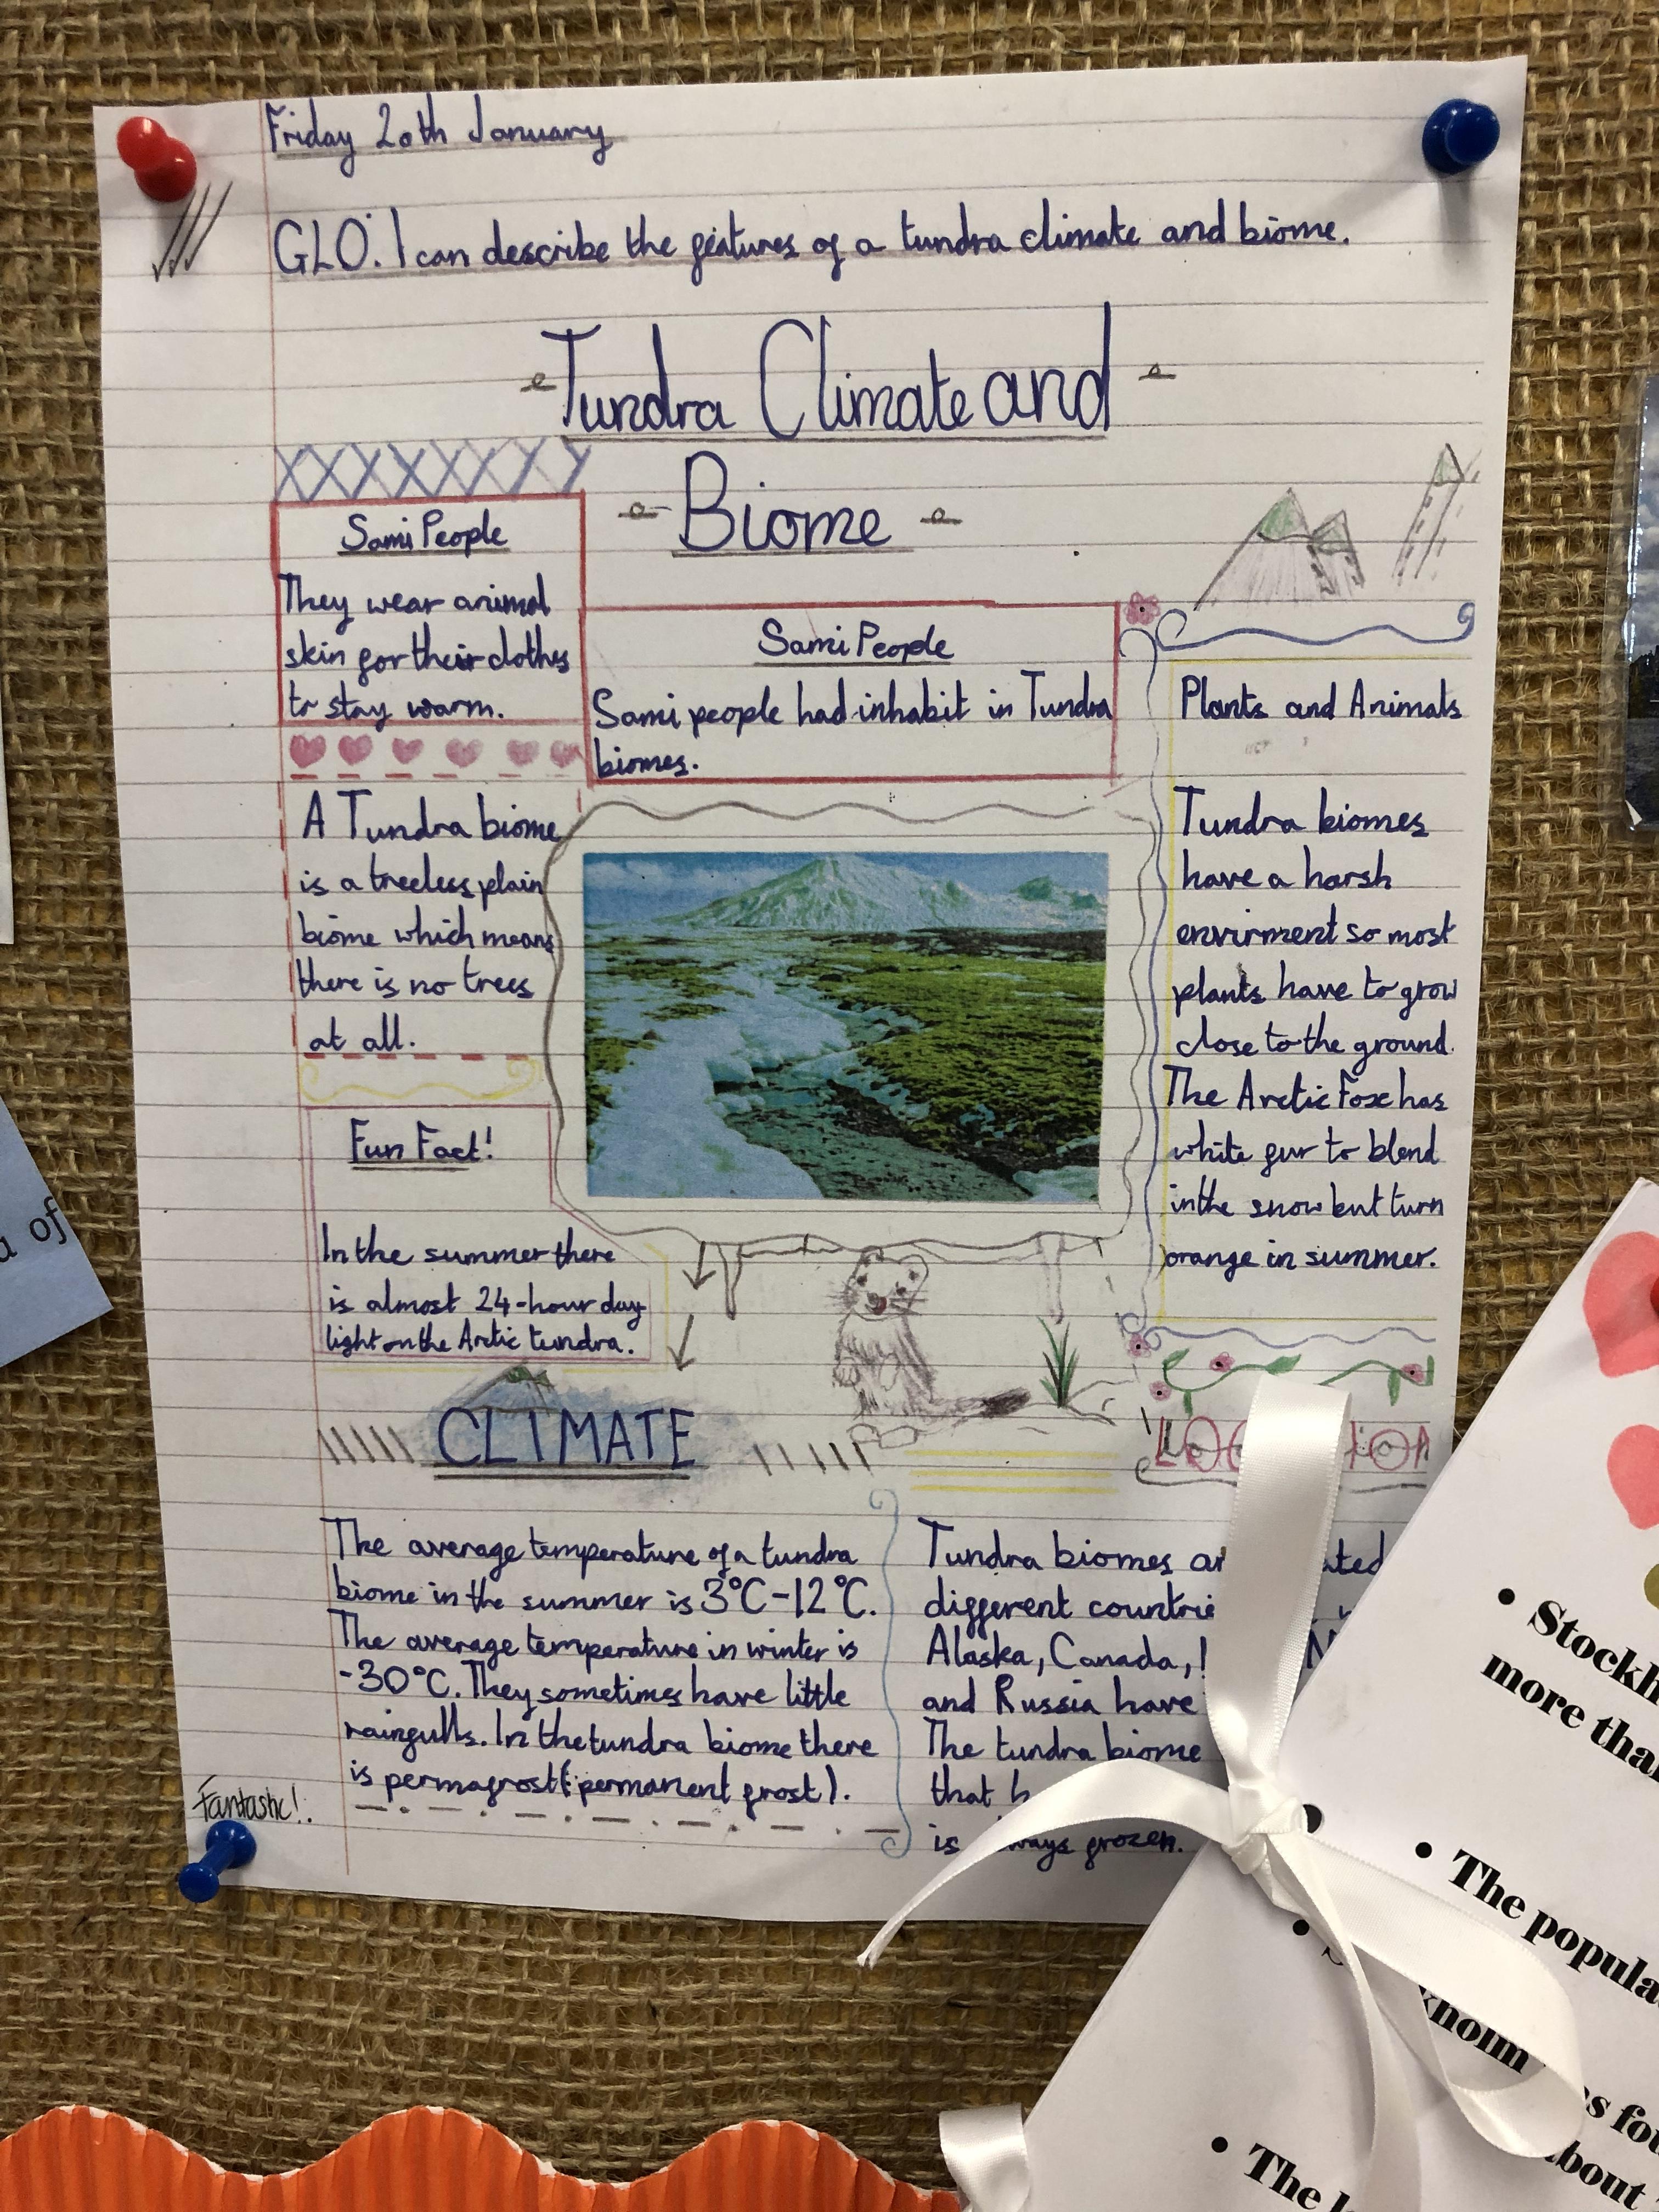 Friday 20th January
GLO: I can describe the features of a tundra climate and biome.
Tundra Climate and
Biome
Sami People
They wear animal
skin for their clothes
to stay warm.
Sami People
Sami people had inhabit in Tundra
biomes.
A Tundra biome
is a treeless plain
biome which means
there is no trees
at all.
Fun Fact!
In the summer there
is almost 24-hour day
light on the Arctic tundra.
Plants and Animals
Tundra biomes
have a harsh
envirment so most
plants have to grow
close to the ground.
The Arctic Fox has
white fur to blend
in the snow but turn
orange in summer.
CLIMATE
The average temperature of a tundra
biome in the summer is 3°C-12°C.
The average temperature in winter is
-30°C. They sometimes have little
rainfulls. In the tundra biome there
is permafrost (permanent frost).
Fantastic!
Tundra biomes
different
Alaska, Canada,
and Russia have
The tundra biome
that
is frozen.
a of
• Stockh
more tha
• The popula
kholm
s fo
bout
• The